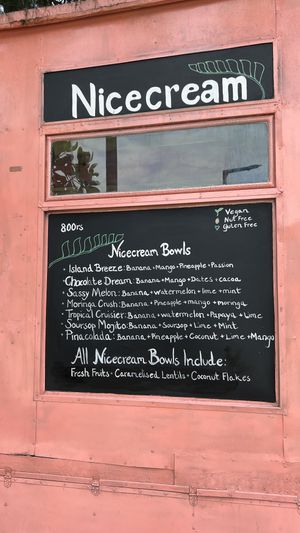 Nicecream
Vegan
Nut Free
Gluten Free
800rs
Nicecream Bowls
• Island Breeze: Banana + Mango + Pineapple + Passion
• Chocolate Dream: Banana + Mango + Dates + cacao
• Sassy Melon: Banana + watermelon + lime + mint
• Moringa Crush: Banana + Pineapple + mango + moringa
• Tropical Cruisier: Banana + watermelon + Papaya + Lime
• Soursop Mojito: Banana + Soursop + Lime + Mint
• Pinacolada: Banana + Pineapple + Coconut + Lime + Mango
All Nicecream Bowls Include:
Fresh Fruits - Caramelised Lentils - Coconut Flakes